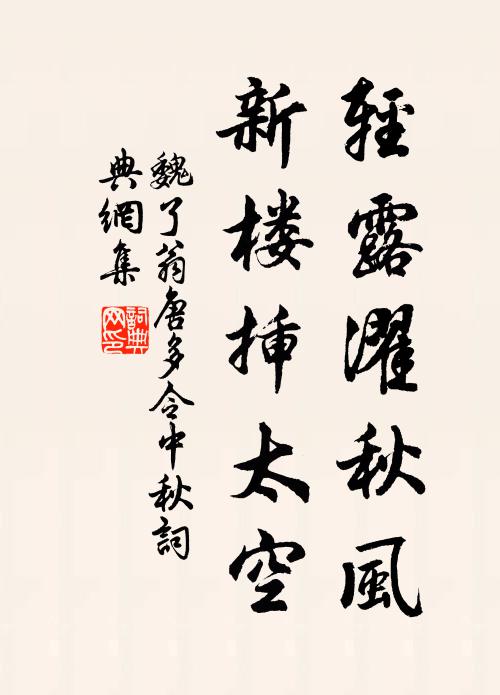 輕露濯秋風
新楼挿太空
魏了翁唐多令中秋詞
典網集
詞典网印